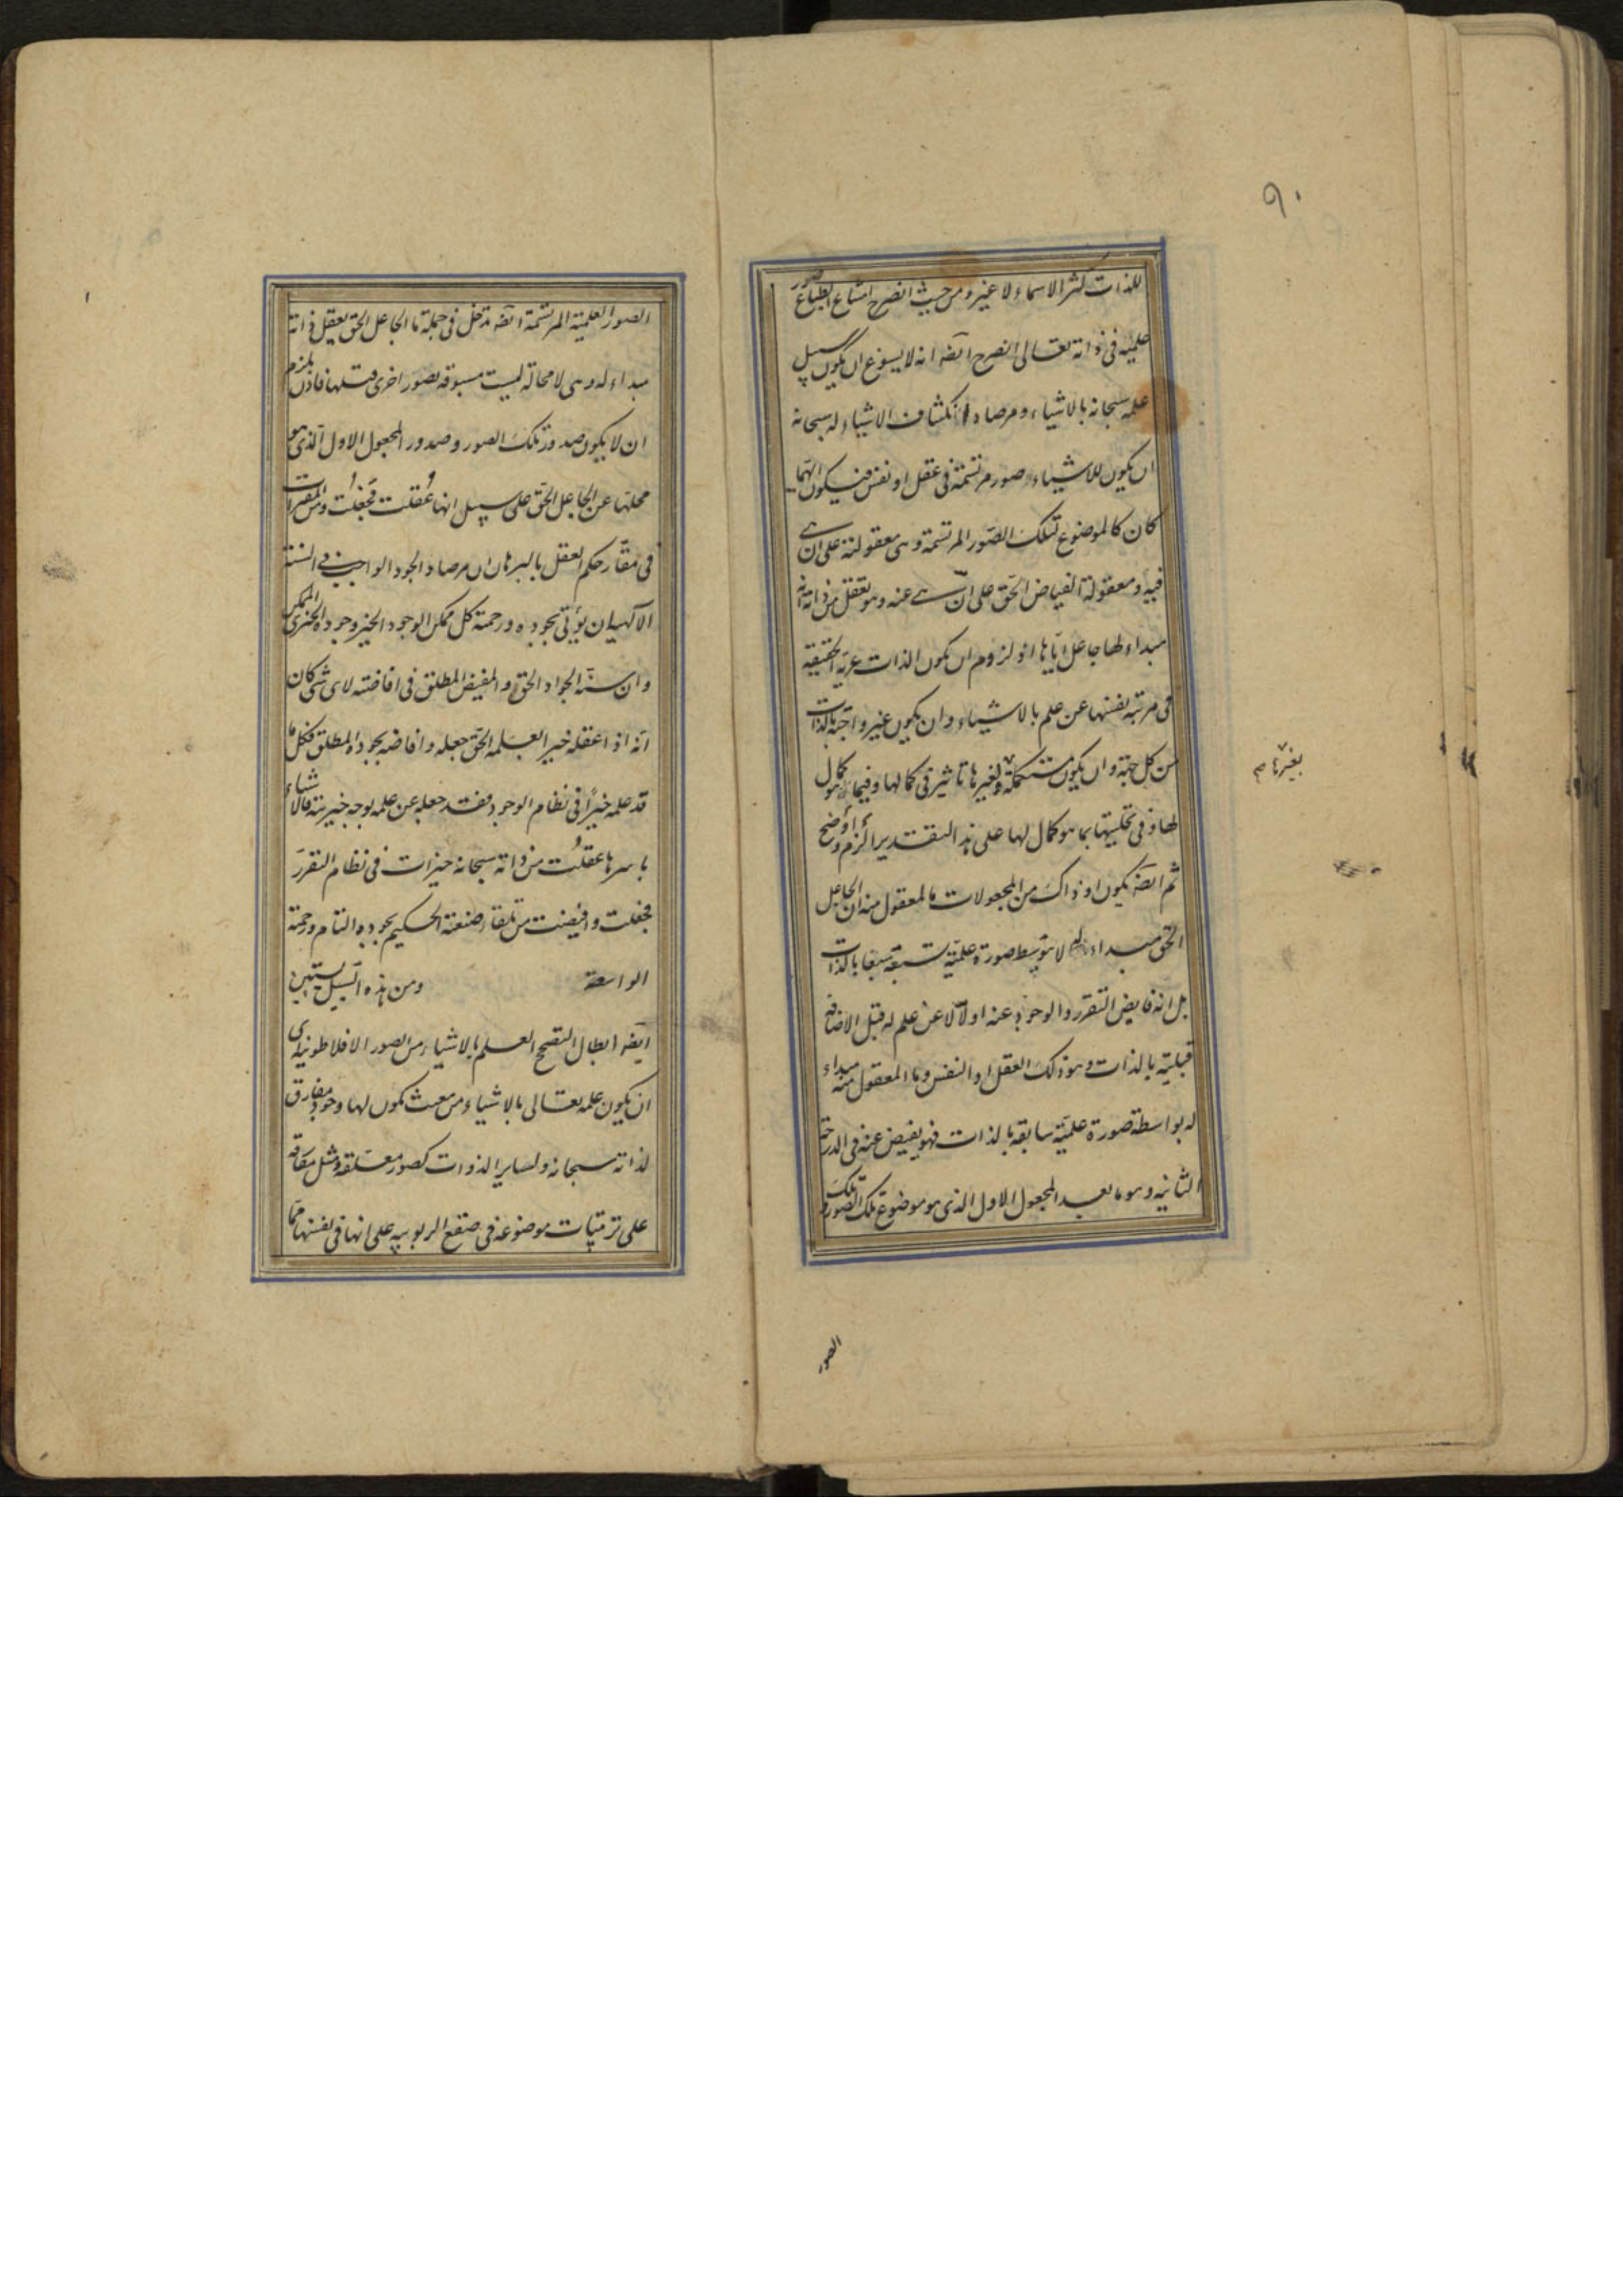 ٩٠
للذات كثر الاسماء لا غير ومن حيث انصرح امتناع انطباع صور
علمية فى ذاته تعالى انصرح ايضه انه لا يسوغ ان يكون سبيل
علمه سبحانه بالاشياء ومرصاد انكشاف الاشياء له سبحانه
ان يكون للاشياء صور مرتسمة فى عقل او نفس فيكون ايهما
كان كالموضوع لتلك الصور المرتسمة وهى معقولته على ان هى
فيه ومعقولة الفياض الحق على ان هى عنه وهو تعقل من ذاته انه
مبداء لها جاعل اياها اذ لزوم ان يكون الذات عرية الحقيقة
فى مرتبة نفسها عن علم بالاشياء وان يكون غير واجبة بالذات
من كل جهة وان يكون مستكملة ولغيرها تاثير فى كمالها وفيما هو كمال
لها وفى تحليتها بما هو كمال لها على هذا التقدير الزم واوضح
بغيرها م
ثم ايضه يكون اذ ذاك من المجعولات ما المعقول منه ان الجاعل
الحق مبداء له لا بتوسط صورة علمية تسبقه سبقا بالذات
بل انه فايض التقرر والوجود عنه اولا لا عن علم له قبل الافاضة
قبلية بالذات وهو ذلك العقل او النفس وما المعقول منه مبداء
له بواسطة صورة علمية سابقة بالذات فهو يفيض عنه فى الدرجة
الثانيه وهو ما بعد المجعول الاول الذى هو موضوع تلك الصور وتلك
الصور
الصور العلمية المرتسمة ايضه تدخل فى جملة ما الجاعل الحق يعقل ذاته
مبداء له وهى لا محالة ليست مسبوقه بصور اخرى قبلها فاذن يلزم
ان لا يكون صدور تلك الصور وصدور المجعول الاول الذى هو
محلها عن الجاعل الحق على سبيل انها عُقلت فجُعلت ومن المقررات
فى مقار حكم العقل بالبرهان ان مرصاد الجود الواجب فى السنة
الآلهية ان يؤتى بجوده ورحمته كل ممكن الوجود الخير وجوده الخيرى الممكن
وان سنة الجواد الحق والمفيض المطلق فى افاضته لاى شى كان
انه اذا عقله خيرا لعلمه الحق جعله وافاضه بجوده المطلق فكل ما
قد علمه خيرًا فى نظام الوجود فقد جعله عن علمه بوجه خيريته فالاشياء
باسرها عقلت من ذاته سبحانه خيرات فى نظام التقرر
فجعلت وافيضت من تلقاء صنعته الحكيم بجوده التام ورحمته
الواسعة ومن هذه السبيل يستبين
ايضه ابطال التقحم العلم بالاشياء من الصور الافلاطونية اى
ان يكون علمه تعالى بالاشياء من حيث يكون لها وجود مفارق
لذاته سبحانه ولساير الذوات كصور معلقه ومثل مفارقه
على ترتيبات موضوعه فى صقع الربوبيه على انها فى نفسها مما